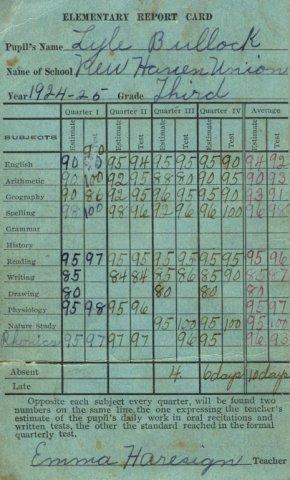 ELEMENTARY REPORT CARD
Pupil's Name Lyle Bullock
Name of School New Haven Union
Year 1924-25 Grade Third
Quarter I Quarter II Quarter III Quarter IV Average
SUBJECTS Estimate Test Estimate Test Estimate Test Estimate Test Estimate Test
English 90 80 95 94 95 95 95 90 94 92
Arithmetic 90 100 92 95 88 80 90 95 90 93
Geography 90 86 92 95 96 95 95 90 93 91
Spelling 98 100 98 96 92 96 96 100 96
Grammar
History
Reading 95 97 95 95 95 95 95 95 95 96
Writing 85 84 84 85 86 85 90 85 87
Drawing 80 80 80 80
Physiology 95 98 95 96 95 97
Nature Study 95 100 95 100 95 100
Phonics 95 97 97 97 96 95 96 93
Absent 4 6 days 10 days
Late
Opposite each subject every quarter, will be found two
numbers on the same line, the one expressing the teacher's
estimate of the pupil's daily work in oral recitations and
written tests, the other the standard reached in the formal
quarterly test.
Emma Haresign Teacher